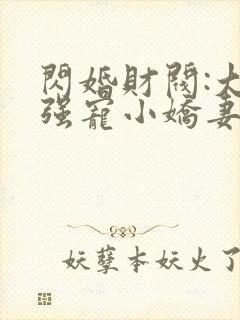 閃婚財閥:大
强寵小嬌妻
妖孽本妖火了